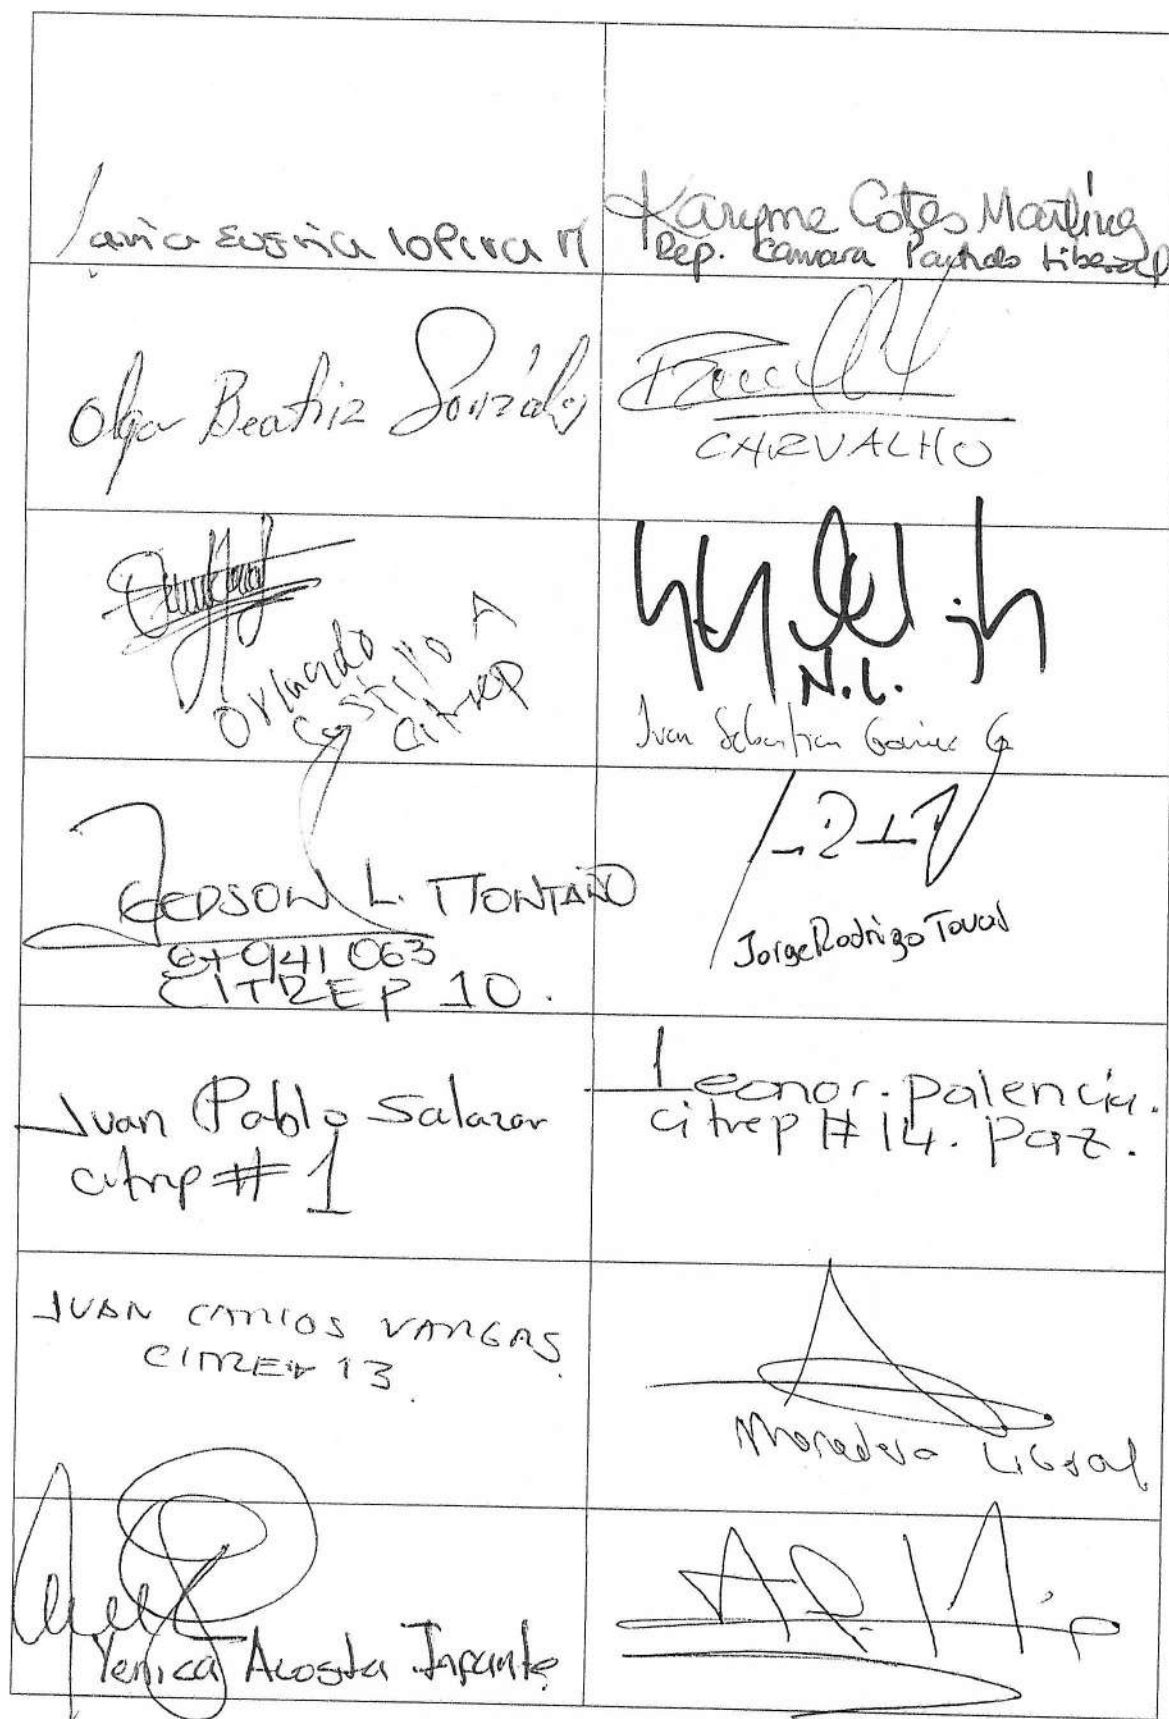 María Eugenia Lopera M
Karyme Cotes Martínez
Rep. Camara Partido Liberal
Olga Beatriz González
CARVALHO
Orlando
Castillo A
Citrep
N.L.
Juan Sebastian Gómez G
GERSON L. MONTAÑO
CITREP 10.
Jorge Rodrigo Tovar
Juan Pablo Salazar
citrep # 1
Leonor. Palencia.
citrep # 14. Paz.
JUAN CARLOS VARGAS
CITREP 13.
Monedero Liberal
Yenica Acosta Infante